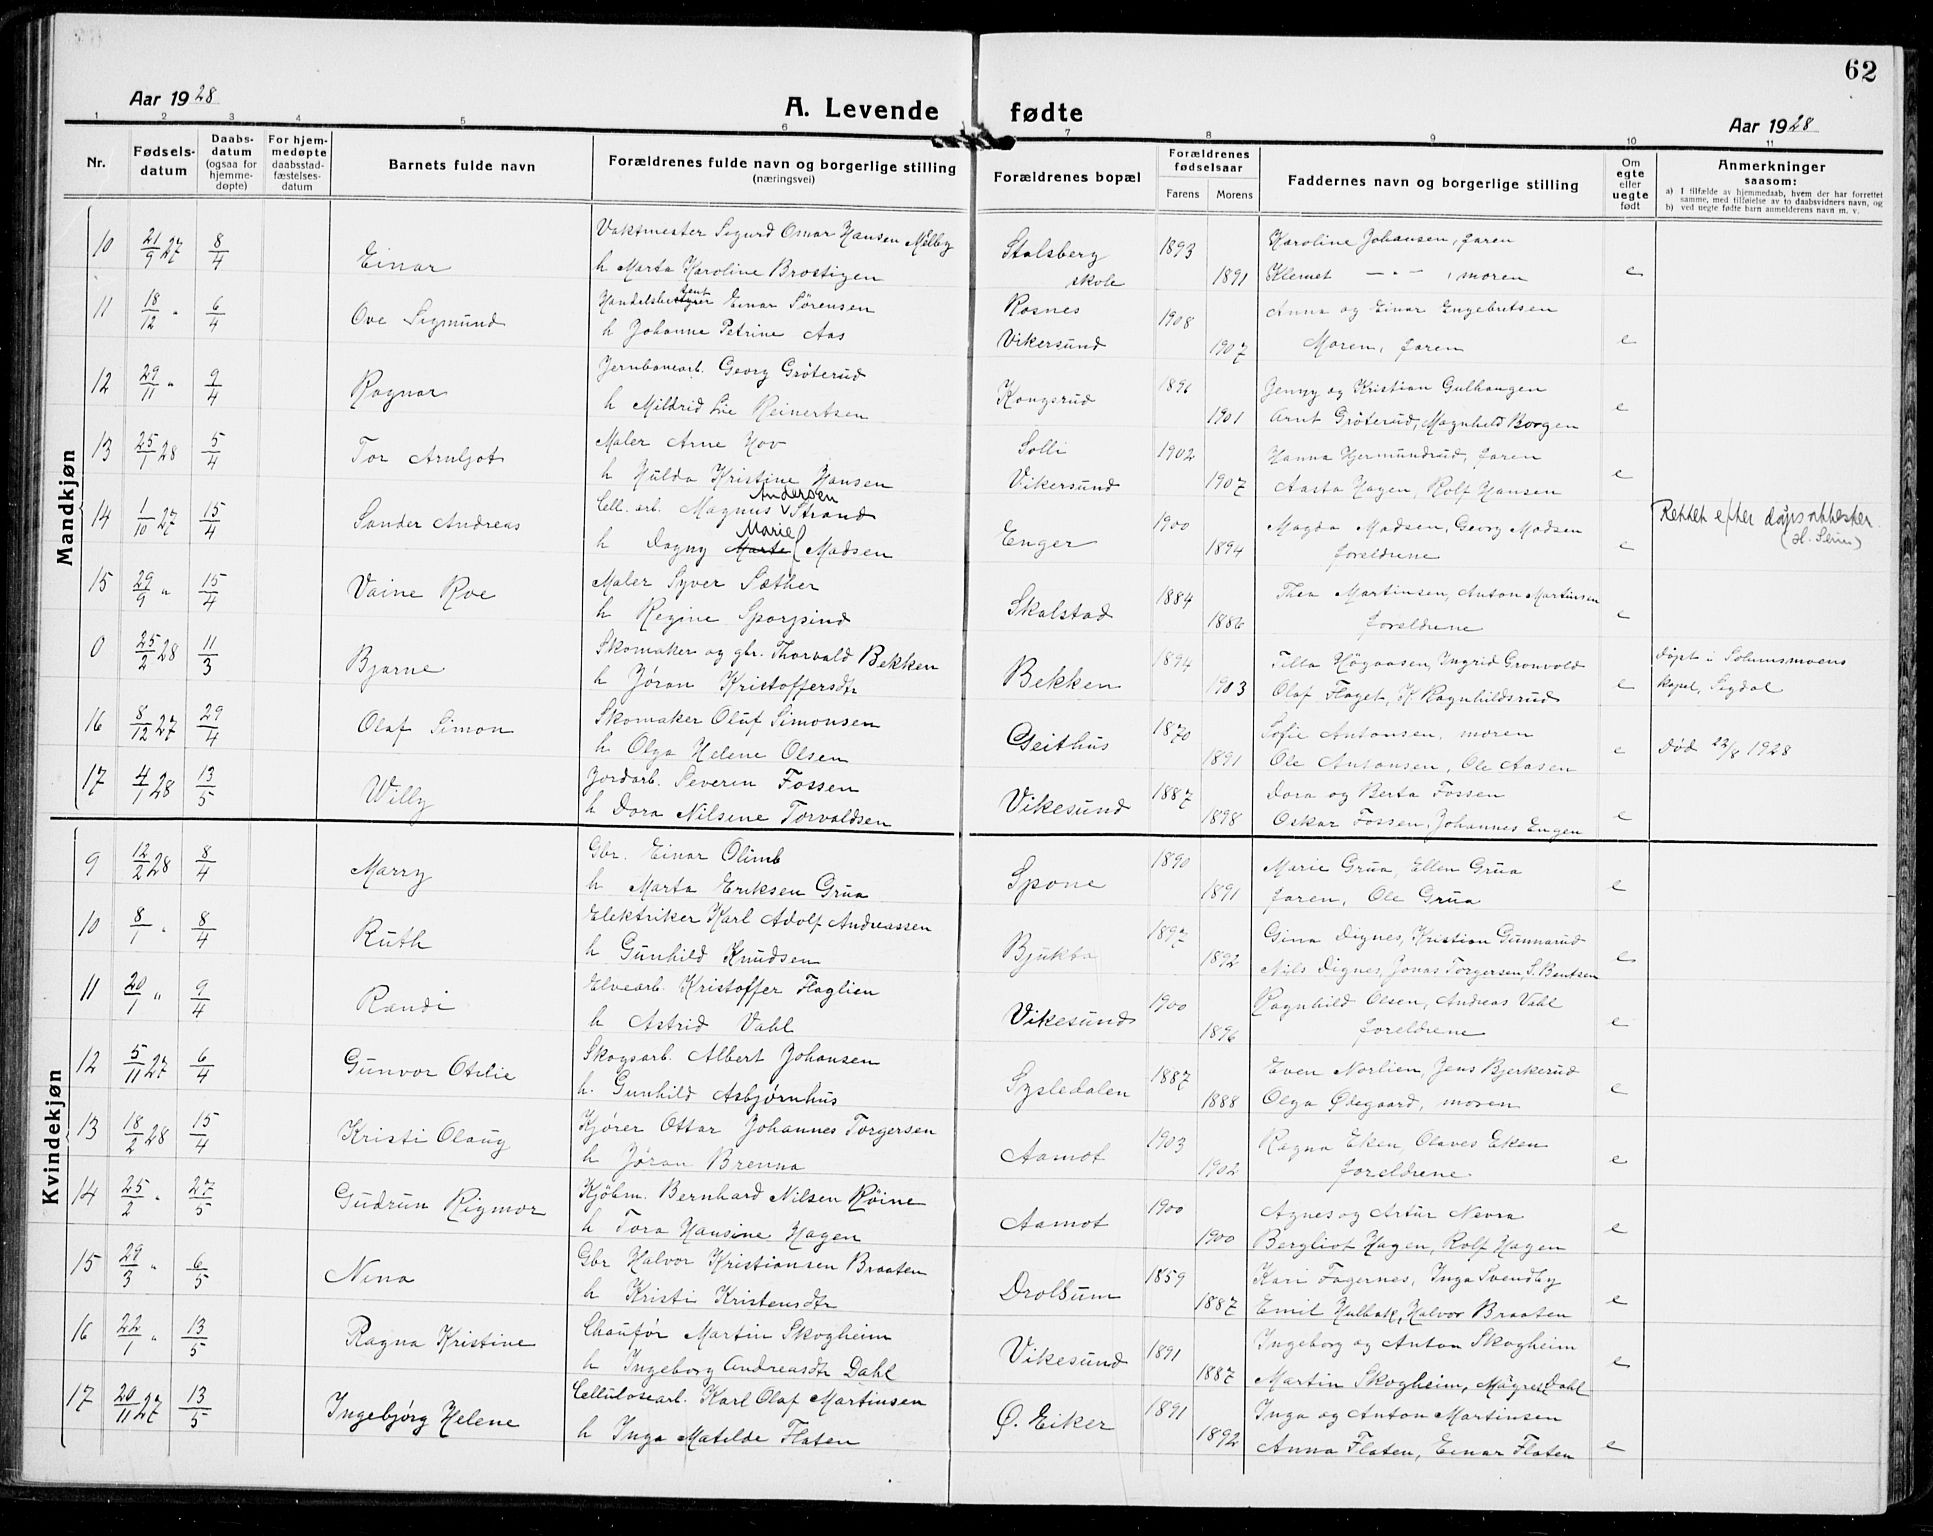 62
Aar 1928
A. Levende fødte
Aar 1928
1 2 3 4 5 6 7 8 9 10 11
Nr.
Fødsels-
datum
Daabs-
datum
(ogsaa for
hjemme-
døpte)
For hjem-
medøpte
daabsstad-
fæstelses-
datum
Barnets fulde navn
Forældrenes fulde navn og borgerlige stilling
(næringsvei)
Forældrenes bopæl
Forældrenes
fødselsaar
Farens Morens
Faddernes navn og borgerlige stilling
Om
egte
eller
uegte
født
Anmerkninger
saasom:
a) I tilfælde av hjemmedaab, hvem der har forrettet
samme, med tilføielse av to daabsvidners navn, og
b) ved uegte fødte barn anmelderens navn m. v.
Mandkjøn
10 21/9 27 8/4 Einar Vaktmester Sigurd Omar Hansen Melby Stalsberg 1893 Karoline Johansen, faren
h Marta Karoline Brostigen skole 1891 Klemet — " — , moren e
11 18/12 " 6/4 Ove Sigmund Einar Sørensen Rosnes 1908 Anna og Einar Engebretsen
h Johanne Petrine Aas Vikersund 1907 Moren, faren e
12 29/11 " 9/4 Ragnar Jernbanearb. Georg Gröterud Kongsrud 1896 Jenny og Kristian Gulhaugen
h Mildrid Lie Reinertsen 1901 Arnt Gröterud, Magnhild Borgen e
13 25/1 28 5/4 Tor Arnljot Maler Arne Hov Solli 1902 Hanna Hjermundrud, faren
h Hulda Kristine Hansen Vikersund 1907 Aasta Hagen, Rolf Hansen e
14 1/10 27 15/4 Sander Andreas Cell. arb. Magnus Andersen Strand Enger 1900 Magda Madsen, Georg Madsen Rettet efter dåpsattester
h Dagny Marte Marie Madsen 1894 foreldrene e
15 29/9 " 15/4 Vaine Roe Maler Syver Sæther Skalstad 1884 Thea Martinsen, Anton Martinsen
h Regine Sporpind 1886 foreldrene e
0 25/2 28 11/3 Bjarne Skomaker og gbr. Thorvald Bekken Bekken 1894 Tilla Högaasen, Ingrid Grönvold Døpt i Solumsmoens
h Jöran Kristoffersdtr 1903 Olaf Flaget, K. Ragnhildsrud e kapel, Sigdal
16 8/12 27 29/4 Olaf Simon Skomaker Oluf Simonsen Geithus 1870 Sofie Antonsen, moren
h. Olga Helene Olsen 1891 Ole Antonsen, Ole Aasen e Død 22/8 1928
17 4/1 28 13/5 Willy Jordarb. Severin Fossen Vikesund 1887 Dora og Berta Fossen
h Dora Nilsene Torvaldsen 1898 Oskar Fossen, Johannes Engen e
Kvindekjøn
9 12/2 28 8/4 Marry Gbr. Einar Olimb Spone 1890 Marie Grua, Ellen Grua
h Marta Eriksen Grua 1891 faren, Ole Grua e
10 8/1 " 8/4 Ruth Elektriker Karl Adolf Andreassen Bjukta 1897 Gina Dignes, Kristian Gunnarud
h Gunhild Knudsen 1892 Nils Dignes, Jonas Torgersen, S. Bentsen e
11 20/1 " 9/4 Randi Elvearb. Kristoffer Flaglien Vikesund 1900 Ragnhild Olsen, Andreas Vahl
h Astrid Vahl 1896 foreldrene e
12 5/11 27 6/4 Gunvor Otilie Skogsarb. Albert Johansen Sysledalen 1887 Even Norlien, Jens Bjerkerud
h. Gunhild Asbjørnhus 1888 Olga Ødegaard, moren e
13 18/2 28 15/4 Kristi Olaug Kjører Ottar Johannes Torgersen Aamot 1903 Ragna Eken, Olaves Eken
h Jöran Brenna 1902 foreldrene e
14 25/2 " 27/5 Gudrun Rigmor Kjöbm. Bernhard Nilsen Röine Aamot 1900 Agnes og Artur Nevra
h Tora Hansine Hagen 1900 Bergliot Hagen, Rolf Hagen e
15 29/3 " 6/5 Nina Gbr Halvor Kristiansen Braaten Drolsum 1859 Kari Fagernes, Inga Svendby
h Kristi Kristensdtr 1887 Emil Hulbak, Halvor Braaten e
16 22/1 " 13/5 Ragna Kristine Chauför Martin Skogheim Vikesund 1891 Ingeborg og Anton Skogheim
h Ingeborg Andreasdtr Dahl 1887 Martin Skogheim, Dahl e
17 20/11 27 13/5 Ingebjørg Helene Cellulosearb. Karl Olaf Martinsen Ø. Eiker 1891 Inga og Anton Martinsen
h Inga Matilde Flaten 1892 Anna Flaten, Einar Flaten e